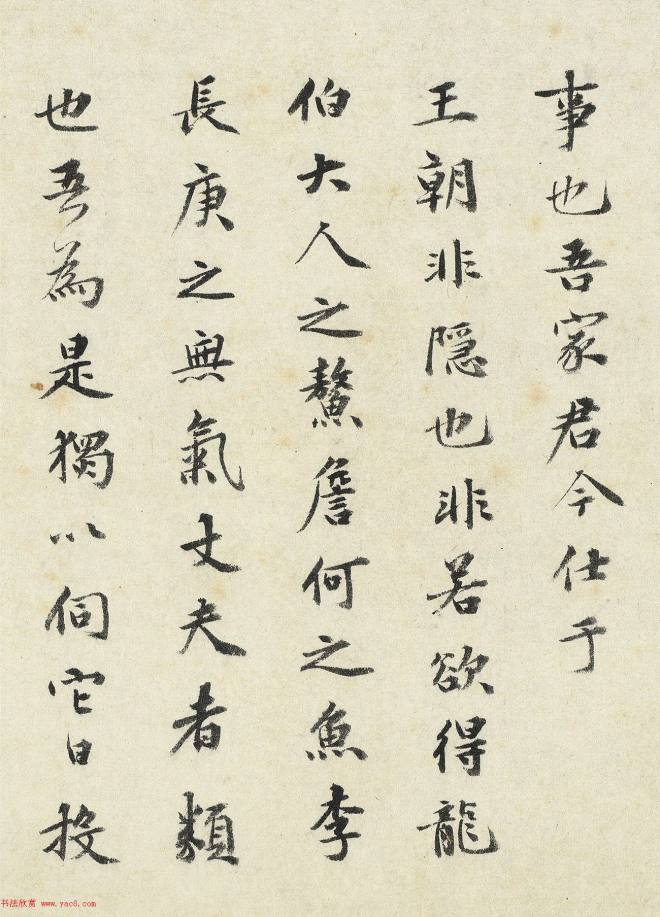 事也吾家君今仕于
王朝非隱也非若欲得龍
伯大人之鰲詹何之魚李
長庚之無氣丈夫者類
也吾為是獨以伺它日投
书法欣赏 www.yac8.com